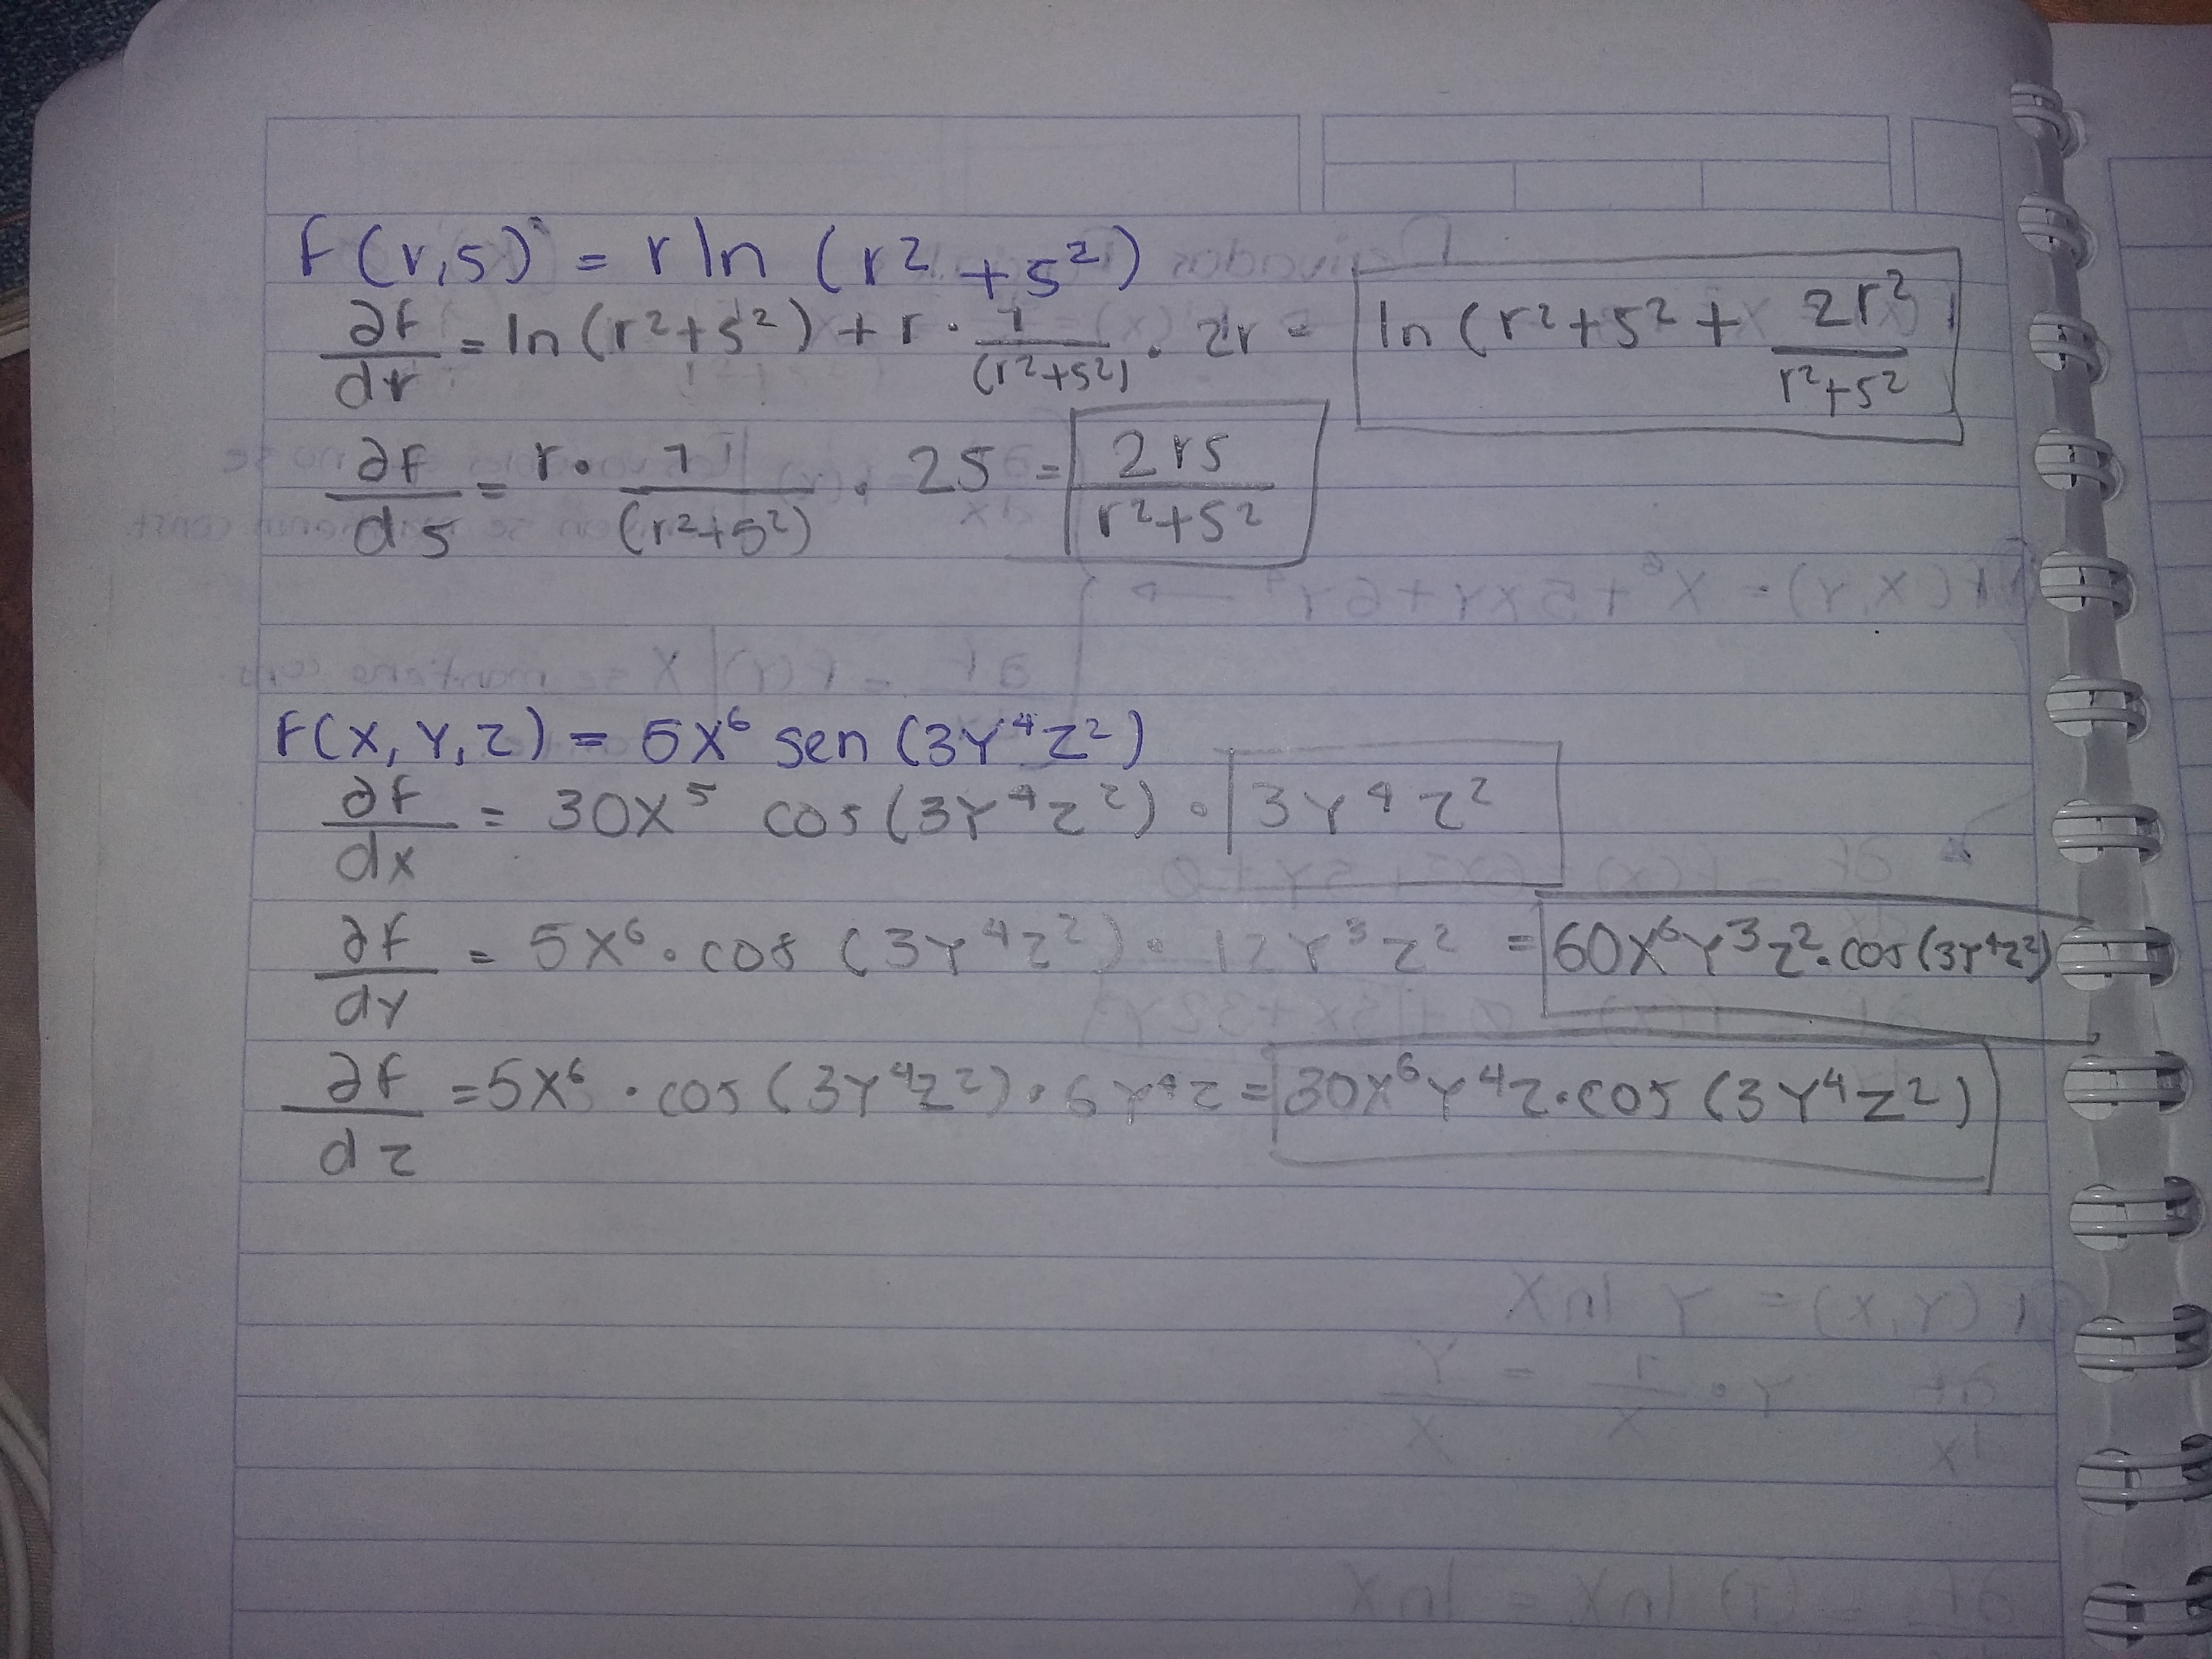 F(r,s) = r ln (r² + s²)
∂f/dr = ln (r²+s²) + r · 1/(r²+s²) · 2r = ln (r²+s² + 2r²/r²+s²
∂f/ds = r · 1/(r²+s²) · 2s = 2rs/r²+s²
F(x, y, z) = 5x⁶ sen (3y⁴z²)
∂f/dx = 30x⁵ cos (3y⁴z²) · 3y⁴z²
∂f/dy = 5x⁶ · cos (3y⁴z²) · 12y³z² = 60x⁶y³z² · cos (3y⁴z²)
∂f/dz = 5x⁶ · cos (3y⁴z²) · 6y⁴z = 30x⁶y⁴z · cos (3y⁴z²)